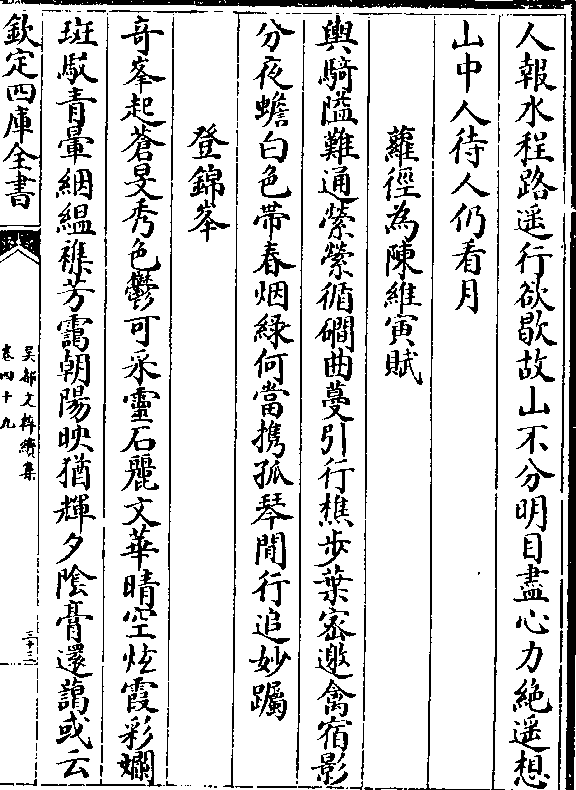 人報水程路遥行欲歇故山不分明目盡心力絶遥想
山中人待人仍看月
蘿徑為陳維寅賦
輿騎隘難通縈縈循磵曲蔓引行樵步葉密邀禽宿影
分夜蟾白色帶春烟緑何當携孤琴閒行追妙躅
登錦峯
竒峯起蒼旻秀色鬱可采靈石麗文華晴空炫霞彩斕
斑駁青暈絪緼襍芳靄朝陽映猶輝夕陰膏還藹或云
欽定四庫全書
吴都文粹續集
卷四十九
三十三